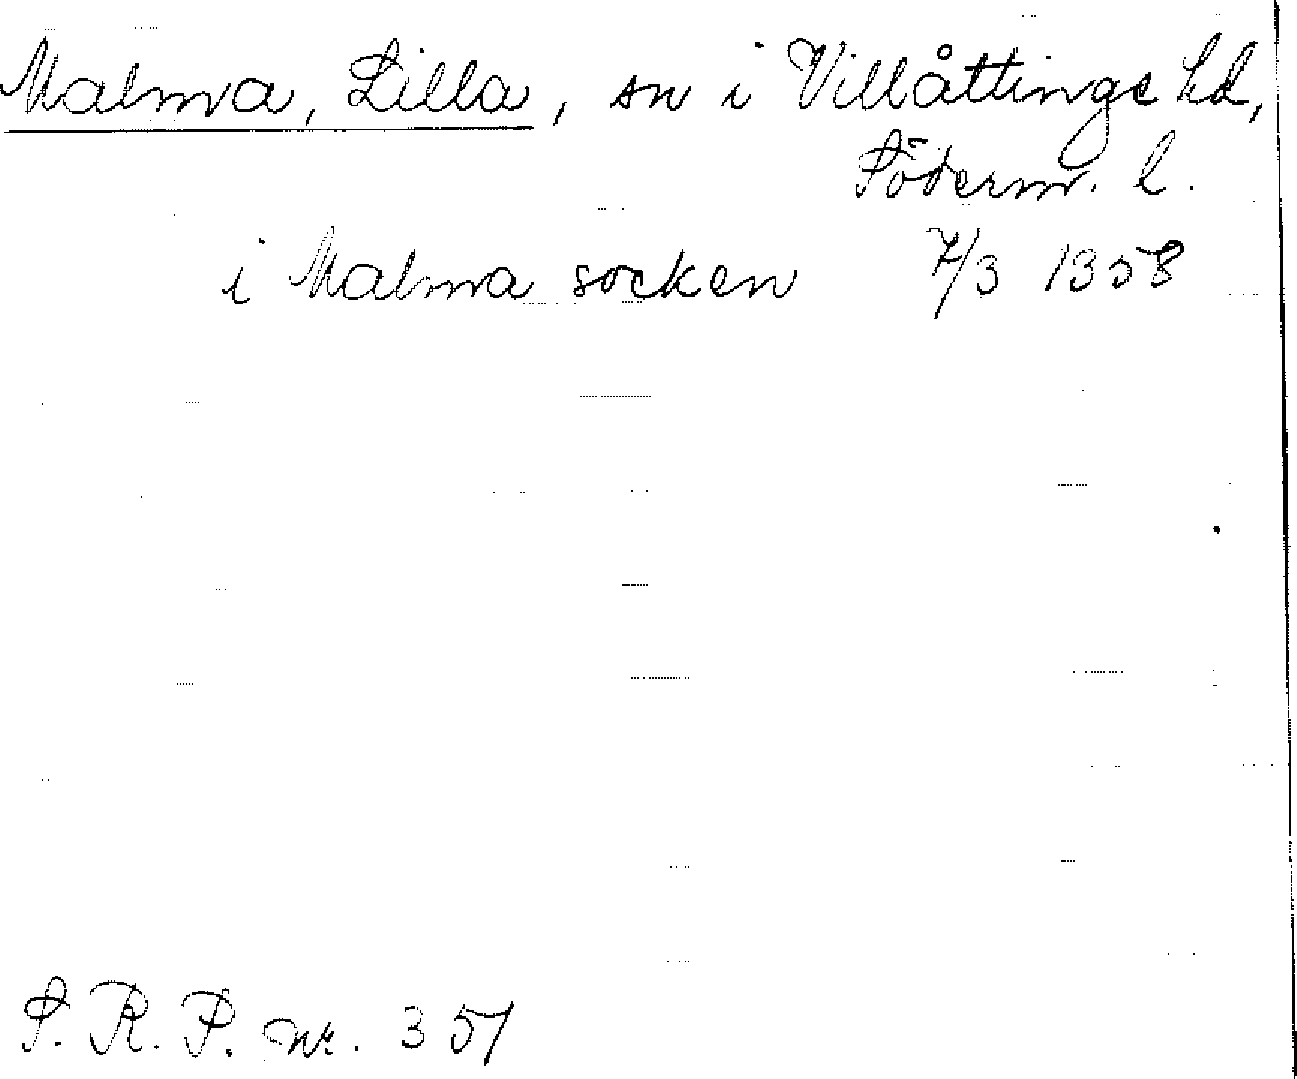 Malma, Lilla, sn i Villåttinge hd,
Söderm. l.
i Malma socken 7/3 1358
S. R. P. nr. 351